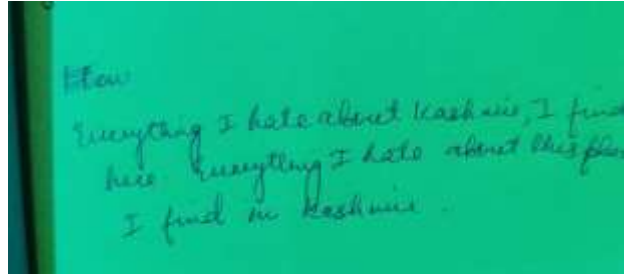 Everything I hate about Kashmir, I find
here Everything I hate about this place
I find in Kashmir.